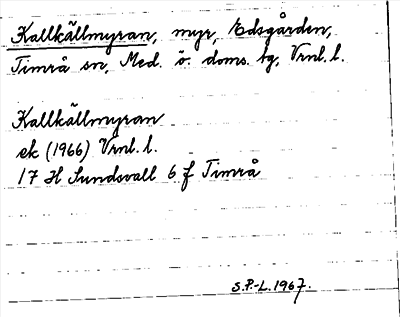 Kallkällmyran, myr, Edsgården,
Timrå sn, Med. ö. doms. tg, Vrnl. l.
Kallkällmyran
ek (1966) Vrnl. l.
17 H Sundsvall 6 f Timrå
S.P.-L. 1967.